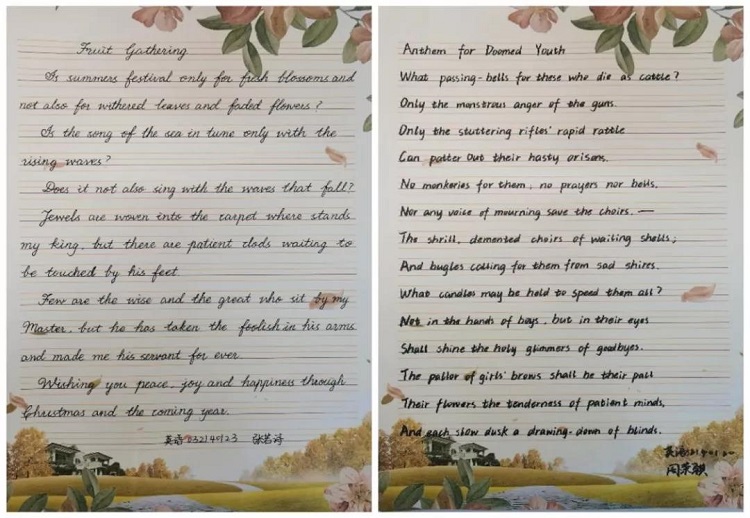 Fruit Gathering
Is summers festival only for fresh blossoms and
not also for withered leaves and faded flowers?
Is the song of the sea in tune only with the
rising waves?
Does it not also sing with the waves that fall?
Jewels are woven into the carpet where stands
my king, but there are patient clods waiting to
be touched by his feet
Few are the wise and the great who sit by my
Master, but he has taken the foolish in his arms
and made me his servant for ever.
Wishing you peace, joy and happiness through
Christmas and the coming year.
英语 032140123 张若诗
Anthem for Doomed Youth
What passing-bells for these who die as cattle?
Only the monstrous anger of the guns.
Only the stuttering rifles' rapid rattle
Can patter out their hasty orisons.
No monkeries for them, no prayers nor bells,
Nor any voice of mourning save the choirs, —
The shrill, demented choirs of wailing shells;
And bugles calling for them from sad shires.
What candles may be held to speed them all?
Not in the hands of boys, but in their eyes
Shall shine the holy glimmers of goodbyes.
The pallor of girls' brows shall be their pall
Their flowers the tenderness of patient minds,
And each slow dusk a drawing-down of blinds.
英语